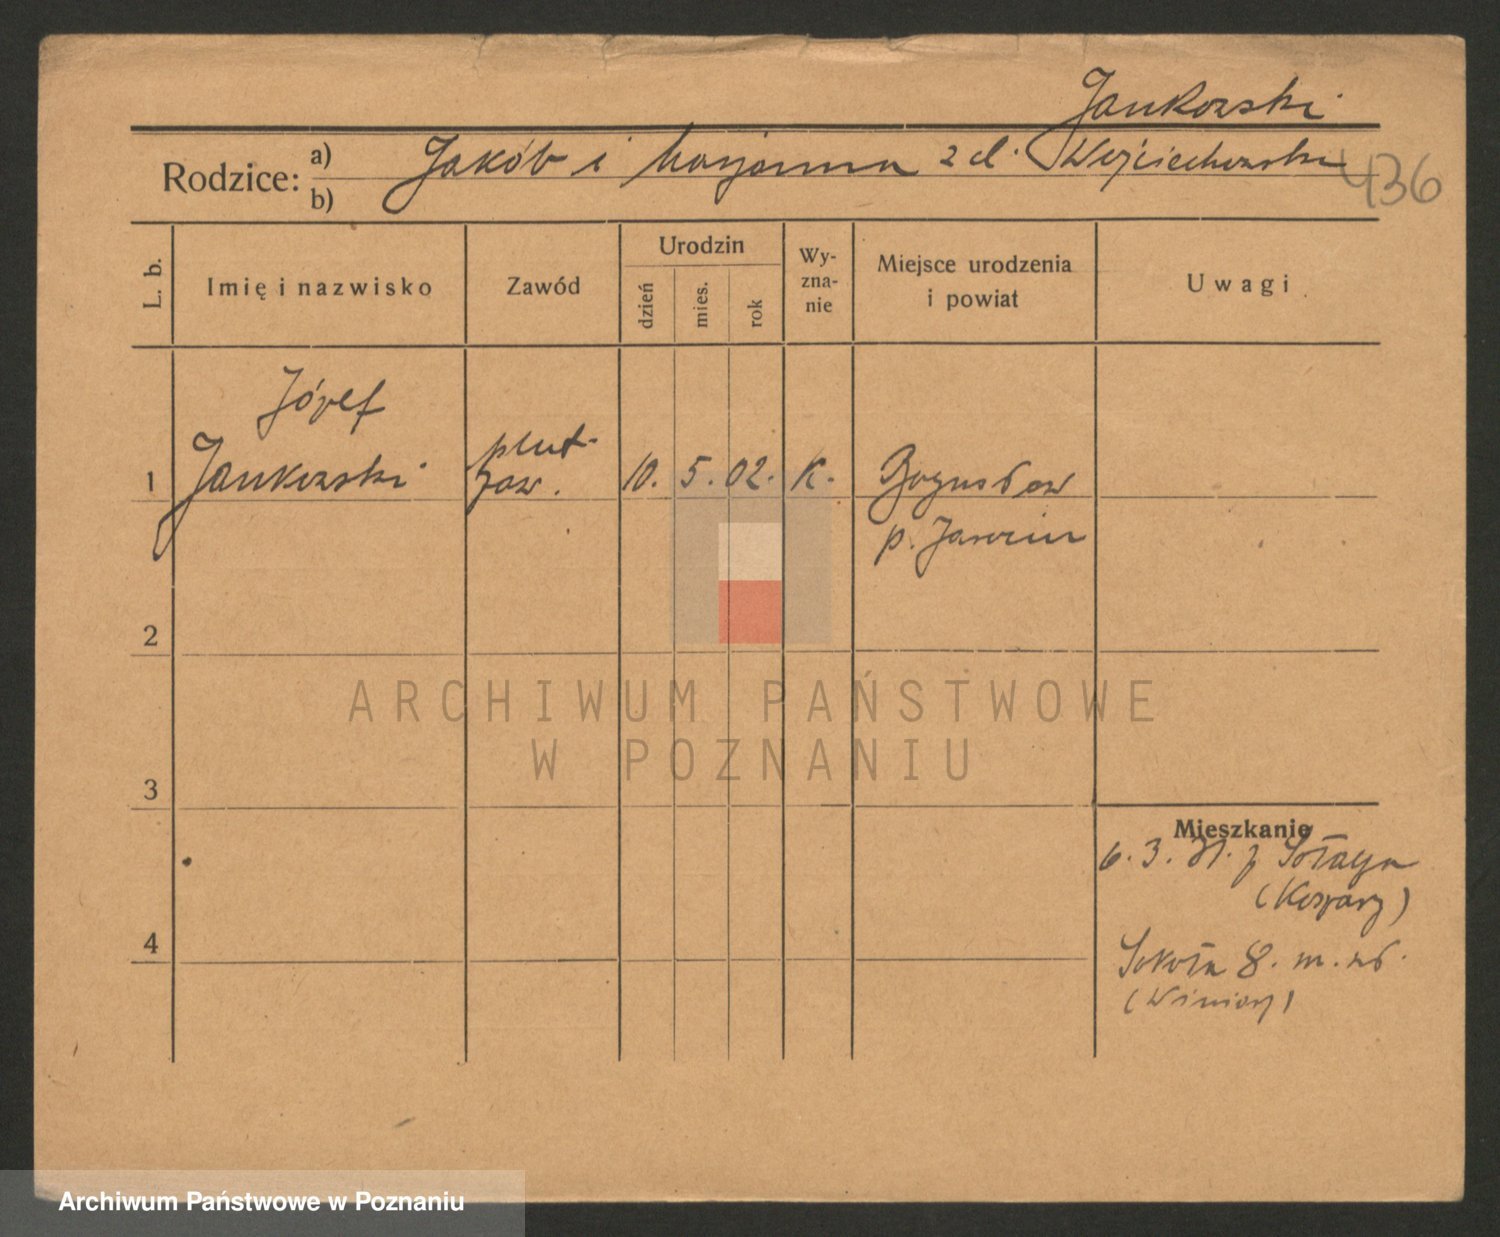 Jankowski
Rodzice: a) Jakób i Marjanna z d. Wojciechowska
b)
436
L. b.
Imię i nazwisko
Zawód
Urodzin
dzień
mies.
rok
Wy-
zna-
nie
Miejsce urodzenia
i powiat
Uwagi
Józef
1 Jankowski
plut.
zaw.
10. 5. 02. K.
Bogusław
p. Jarocin
2
3
4
Mieszkanie
6. 3. 31. z Sołacza
(Koszary)
Sokoła 8. m.
(Winiary)
ARCHIWUM PAŃSTWOWE
W POZNANIU
Archiwum Państwowe w Poznaniu